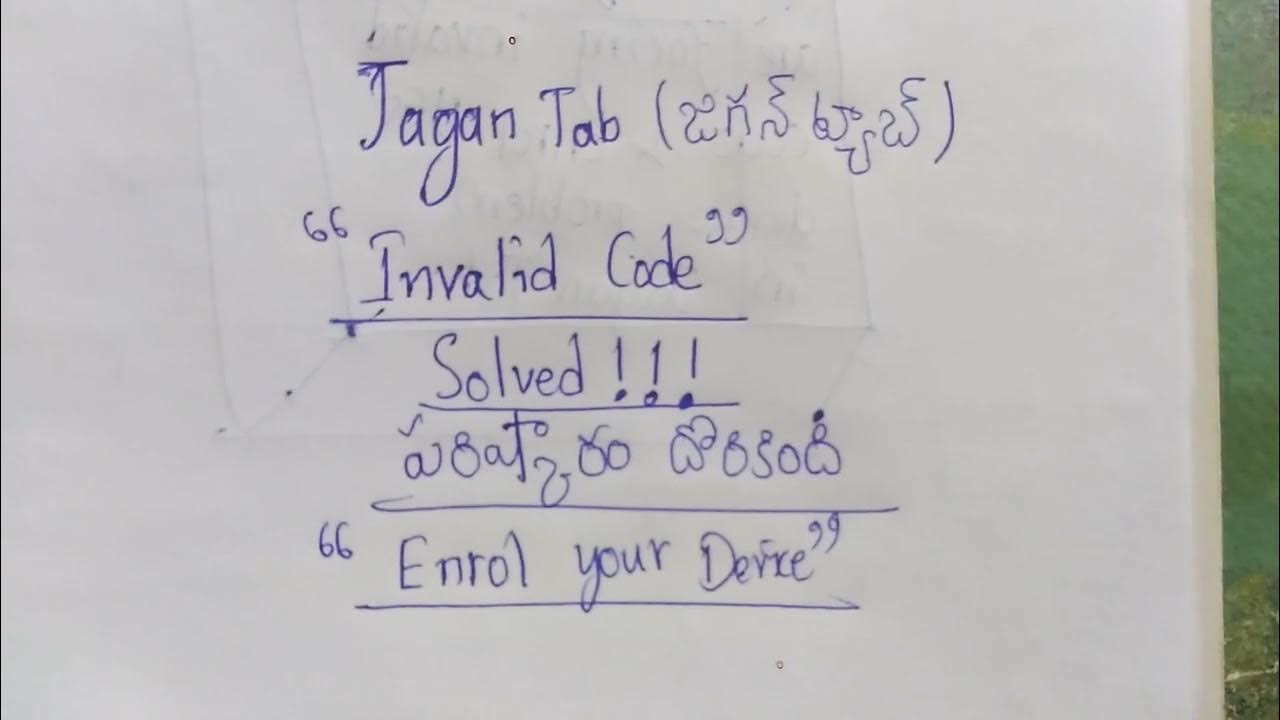 Jagan Tab (జగన్ ట్యాబ్)
"Invalid Code"
Solved !!!
పరిష్కారం దొరికింది
"Enrol your Device"